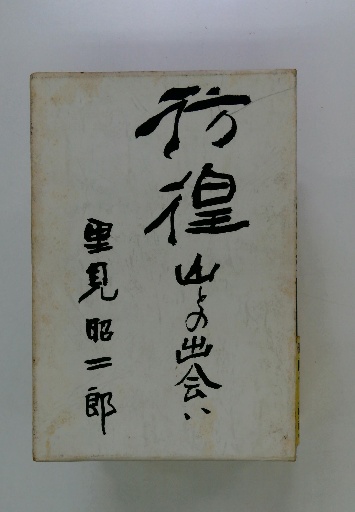 彷徨
山との出会い
里見昭二郎